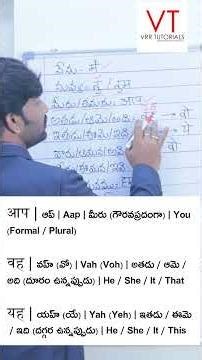 VT
VRR TUTORIALS
నేను - मैं
తू / तुम
మీరు/తమరు: आप
అతడు/ఆమె/అది: वो
ఇతడు/ఈమె/ ये
वो
आप | ఆప్ | Aap | మీరు (గౌరవప్రదంగా) | You
(Formal / Plural)
वह | వహ్ (వో) | Vah (Voh) | అతడు / ఆమె /
అది (దూరం ఉన్నప్పుడు) | He / She / It / That
यह | యహ్ (యే) | Yah (Yeh) | ఇతడు / ఈమె
/ ఇది (దగ్గర ఉన్నప్పుడు) | He / She / It / This